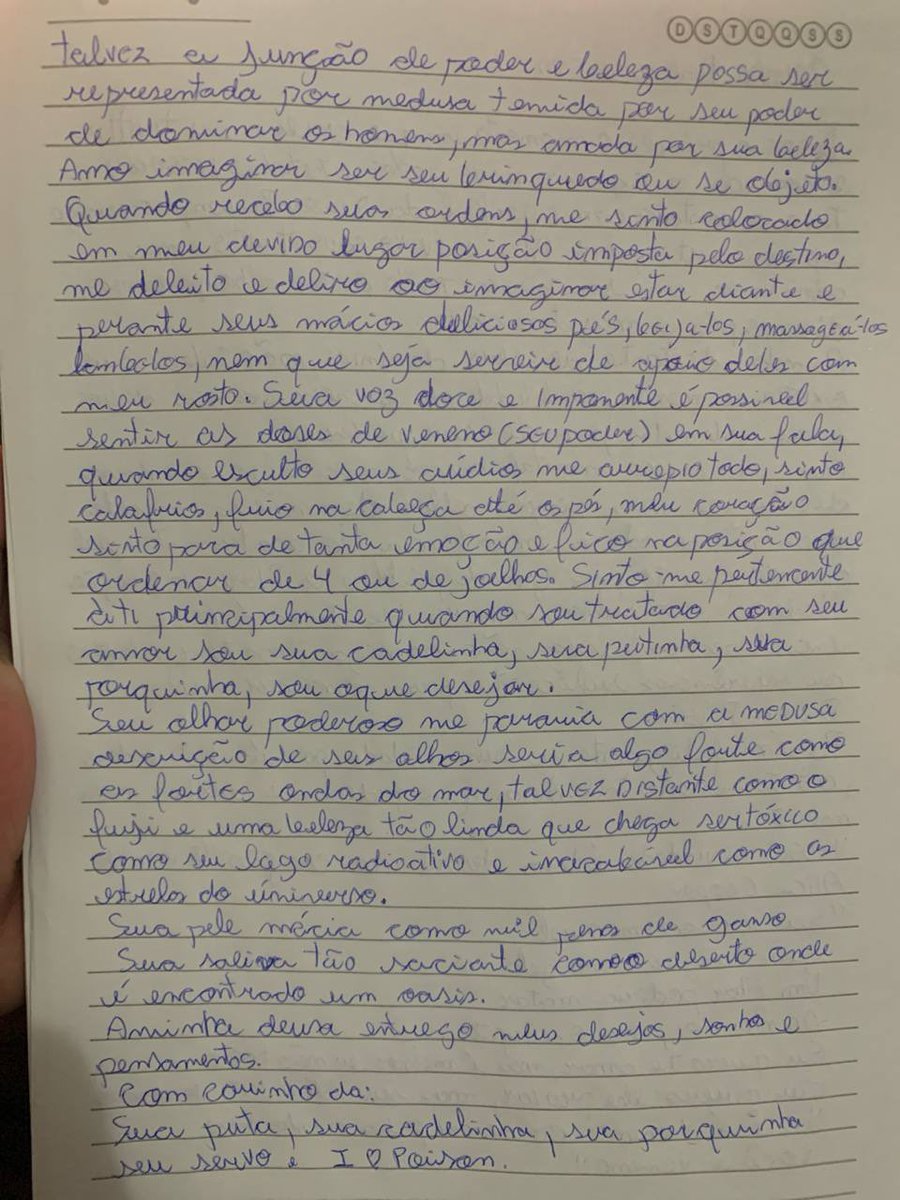 D S T Q Q S S
talvez a junção de poder e beleza possa ser
representada por medusa temida por seu poder
de dominar os homens, mas amada por sua beleza.
Amo imaginar ser seu brinquedo ou se objeto.
Quando recebo suas ordens, me sinto colocado
em meu devido lugar posição imposta pelo destino,
me deleito e deliro ao imaginar estar diante e
perante seus mácios deliciosos pés, beija-los, massageá-los
lambelos, nem que seja serveir de apoio deles com
meu rosto. Sua voz doce e Imponente é possivel
sentir as doses de veneno (SEU poder) em sua fala,
quando esculto seus aúdios me arrepio todo, sinto
calafrios, frio na cabeça até os pés, meu coração
sinto para de tanta emoção e fico na posição que
ordenar de 4 ou de joelhos. Sinto-me pertencente
à ti principalmente quando sou tratado com seu
amor sou sua cadelinha, sua putinha, sua
porquinha, sou oque desejar.
Seu olhar poderoso me pararia com a MEDUSA
descrição de seus olhos seria algo forte como
as fortes ondas do mar, talVEZ DIstante como o
fuji e uma beleza tão linda que chega ser tóxico
como seu lago radioativo e inacabável como as
estrelas do úniverso.
Sua pele mácia como mil penas de ganso
Sua saliva tão saciante como o deserto onde
é encontrado um oasis.
A minha deusa entrego meus desejos, sonhos e
pensamentos.
Com carinho da:
Sua puta, sua cadelinha, sua porquinha
seu servo e I ♡ Poison.